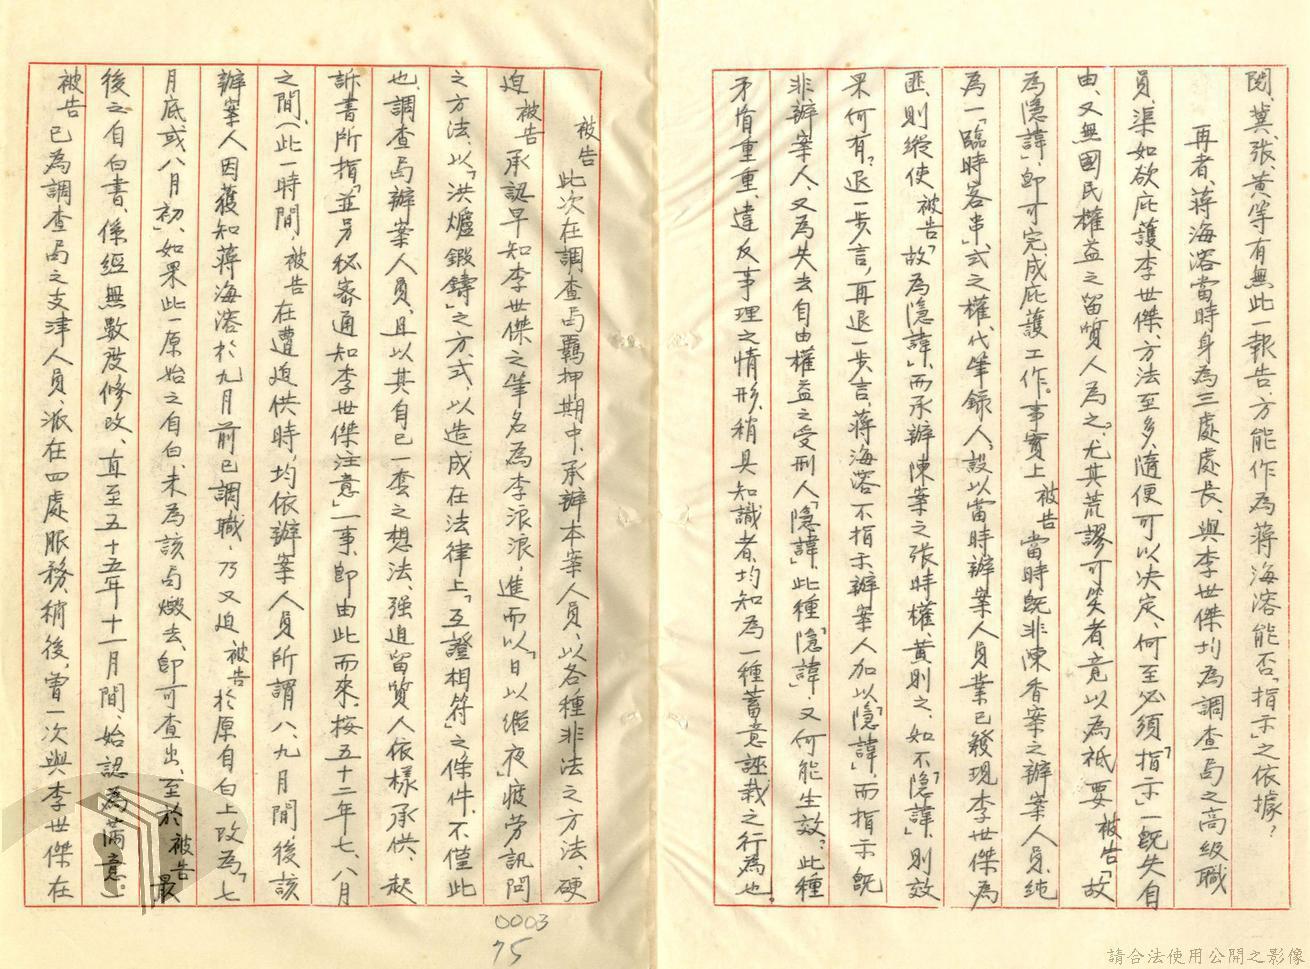 閱、冀、張、黃等有無此一報告、方能作為蔣海溶能否「指示」之依據？
再者、蔣海溶當時身為三處處長、與李世傑均為調查局之高級職
員、渠如欲庇護李世傑、方法至多、隨便可以決定、何至必須「指示」一既失自
由、又無國民權益之留質人為之。尤其荒謬可笑者、竟以為祇要被告「故
為隱諱」、即可完成庇護工作。事實上被告當時既非陳香案之辦案人員、純
為一「臨時客串」式之權代筆錄人、設以當時辦案人員業已發現李世傑為
匪、則縱使被告「故為隱諱」、而承辦陳案之張時權、黃則之、如不「隱諱」、則效
果何有？退一步言、再退一步言、蔣海溶不指示辦案人加以「隱諱」、而指示既
非辦案人、又為失去自由權益之受刑人「隱諱」、此種「隱諱」、又何能生效。此種
矛盾重重、違反事理之情形、稍具知識者、均知為一種蓄意誣栽之行為也。
被告此次在調查局羈押期中、承辦本案人員、以各種非法之方法、硬
迫被告承認早知李世傑之筆名為李浪浪、進而以「日以繼夜」疲勞訊問
之方法、以「洪爐鍛鑄」之方式、以造成在法律上「互證相符」之條件、不僅此
也、調查局辦案人員、且以其自己一套之想法、强迫留質人依樣承供、起
訴書所指「並另秘密通知李世傑注意」一事、即由此而來、按五十二年七、八月
之間、（此一時間、被告在遭迫供時、均依辦案人員所謂八、九月間、後該
辦案人因獲知蔣海溶於九月前已調職、乃又迫被告於原自白上改為「七
月底或八月初」、如果此一原始之自白、未為該局燬去、即可查出、至於被告最
後之自白書、係經無數次修改、直至五十五年十一月間、始認為滿意。）
被告已為調查局之支津人員、派在四處服務、稍後、曾一次與李世傑在
0003
75
請合法使用公開之影像